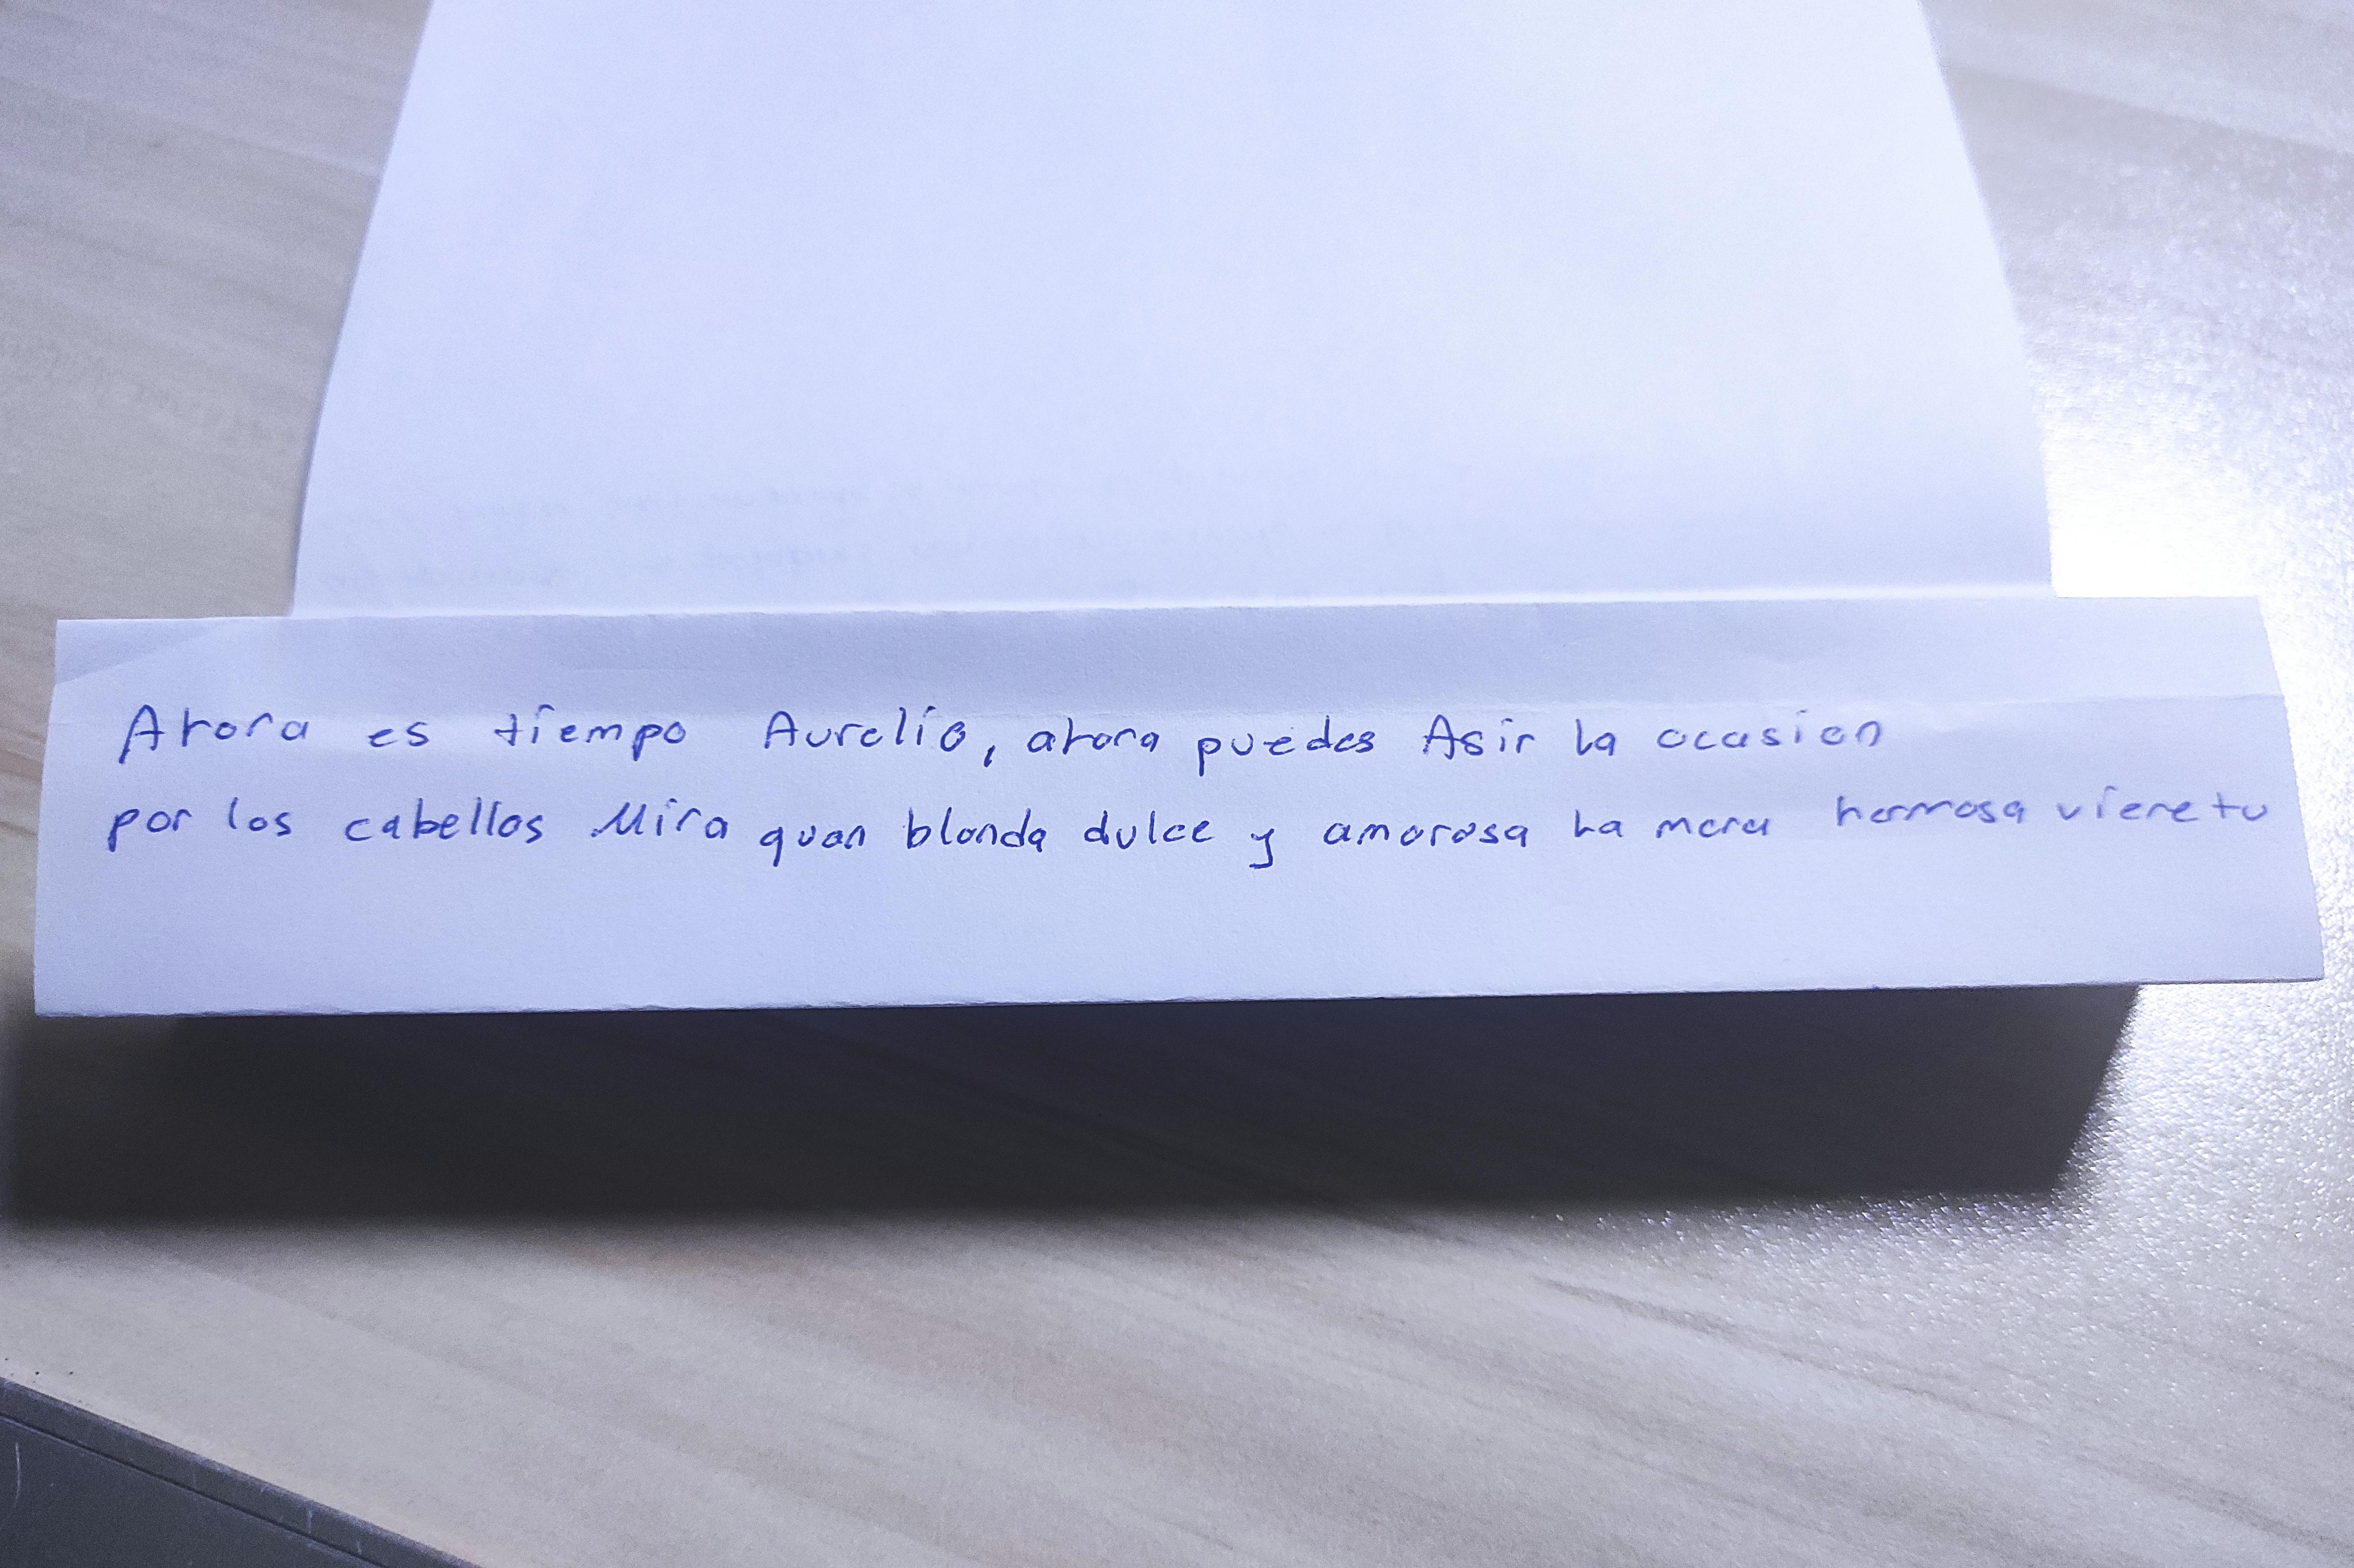 Ahora es tiempo Aurelio, ahora puedes Asir la ocasion
por los cabellos Mira quan blanda dulce y amorosa La mora hermosa viene tu